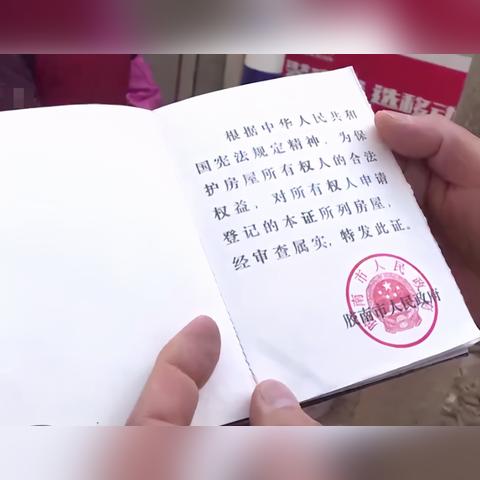 根据中华人民共和
国宪法规定精神，为保
护房屋所有权人的合法
权益，对所有权人申请
登记的本证所列房屋，
经审查属实，特发此证。
胶南市人民政府